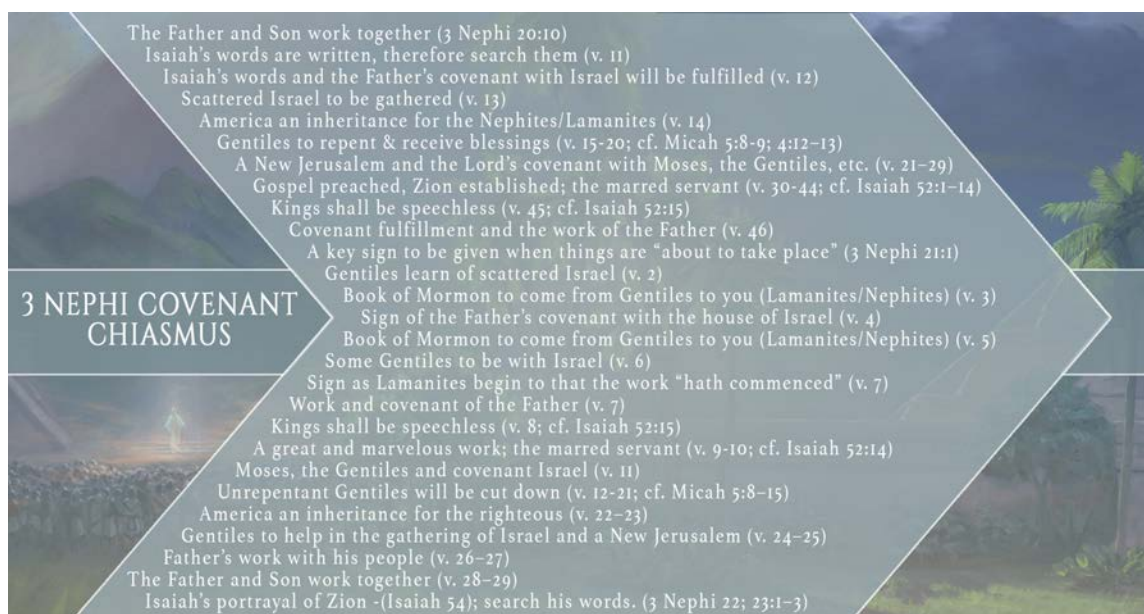 The Father and Son work together (3 Nephi 20:10)
Isaiah's words are written, therefore search them (v. 11)
Isaiah's words and the Father's covenant with Israel will be fulfilled (v. 12)
Scattered Israel to be gathered (v. 13)
America an inheritance for the Nephites/Lamanites (v. 14)
Gentiles to repent & receive blessings (v. 15-20; cf. Micah 5:8-9; 4:12–13)
A New Jerusalem and the Lord's covenant with Moses, the Gentiles, etc. (v. 21–29)
Gospel preached, Zion established; the marred servant (v. 30-44; cf. Isaiah 52:1–14)
Kings shall be speechless (v. 45; cf. Isaiah 52:15)
Covenant fulfillment and the work of the Father (v. 46)
A key sign to be given when things are "about to take place" (3 Nephi 21:1)
Gentiles learn of scattered Israel (v. 2)
Book of Mormon to come from Gentiles to you (Lamanites/Nephites) (v. 3)
Sign of the Father's covenant with the house of Israel (v. 4)
Book of Mormon to come from Gentiles to you (Lamanites/Nephites) (v. 5)
Some Gentiles to be with Israel (v. 6)
Sign as Lamanites begin to that the work "hath commenced" (v. 7)
Work and covenant of the Father (v. 7)
Kings shall be speechless (v. 8; cf. Isaiah 52:15)
A great and marvelous work; the marred servant (v. 9-10; cf. Isaiah 52:14)
Moses, the Gentiles and covenant Israel (v. 11)
Unrepentant Gentiles will be cut down (v. 12-21; cf. Micah 5:8–15)
America an inheritance for the righteous (v. 22–23)
Gentiles to help in the gathering of Israel and a New Jerusalem (v. 24–25)
Father's work with his people (v. 26–27)
The Father and Son work together (v. 28–29)
Isaiah's portrayal of Zion -(Isaiah 54); search his words. (3 Nephi 22; 23:1–3)
3 NEPHI COVENANT
CHIASMUS